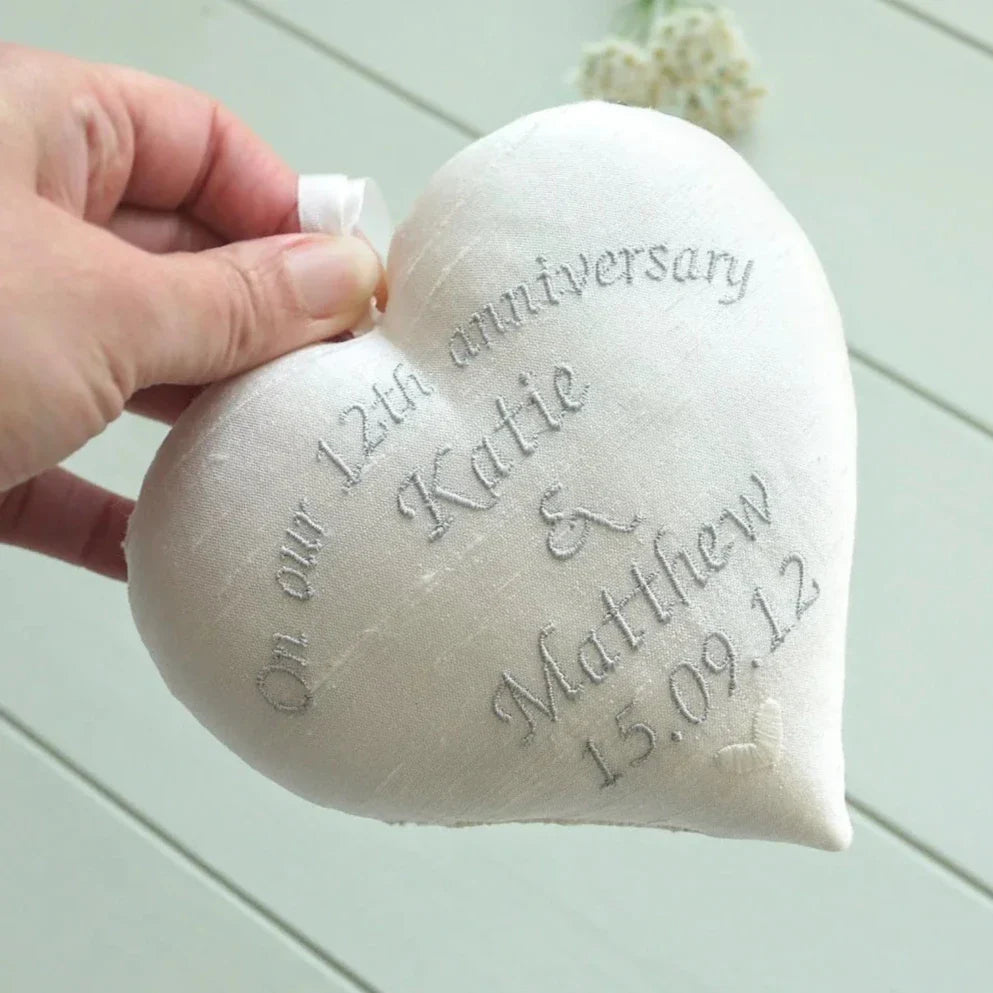 On our 12th anniversary
Katie
&
Matthew
15.09.12